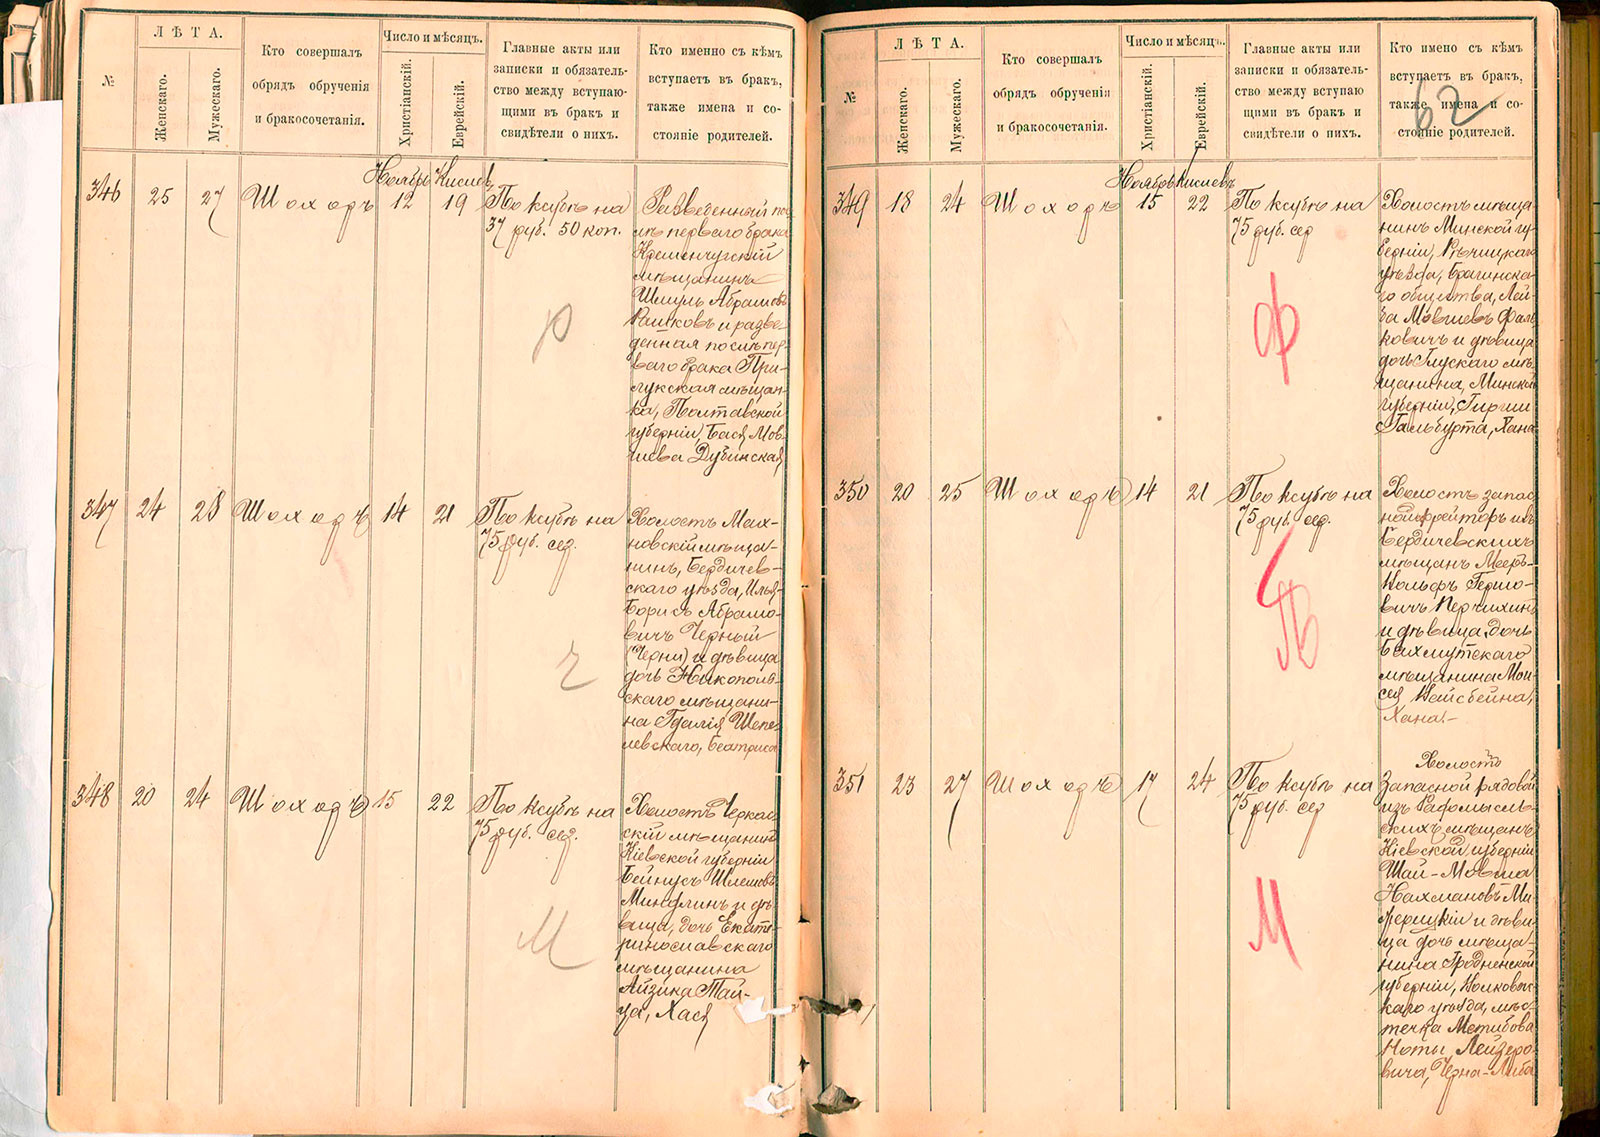 №
ЛѢТА.
Женскаго.
Мужескаго.
Кто совершалъ
обрядъ обрученія
и бракосочетанія.
Число и мѣсяцъ.
Христіанскій.
Еврейскій.
Главные акты или
записки и обязатель-
ство между вступаю-
щими въ бракъ и
свидѣтели о нихъ.
Кто именно съ кѣмъ
вступаетъ въ бракъ,
также имена и со-
стояніе родителей.
Ноябрь Кислевъ
346 25 27 Шоходъ 12 19
По ксубѣ на
37 руб. 50 коп.
Р
Разведенный пос
лѣ перваго брака
Кременчугскій
мѣщанинъ
Шмуль Абрамовъ
Раиковъ и разве
денная послѣ пер
ваго брака При-
лукская мѣщан-
ка, Полтавской
губерніи, Бася Мов
шева Дубинская
347 24 28 Шоходъ 14 21
По ксубѣ на
75 руб. сер.
Ч
Холостъ Мах-
новскій мѣща-
нинъ, Бердичев-
скаго уѣзда, Илья
Борисъ Абрамо-
вичъ Черный
(Черни) и дѣвица
дочь Никополь-
скаго мѣщани-
на Гдалія Шепе-
левскаго, Беатриса
348 20 24 Шоходъ 15 22
По ксубѣ на
75 руб. сер.
М
Холостъ Черкас
скій мѣщанинъ
Кіевской губерніи
Бейнусъ Шлемовъ
Миндлинъ и дѣ-
вица, дочь Екате-
ринославскаго
мѣщанина
Айзика Тай-
ца, Хася
№
ЛѢТА.
Женскаго.
Мужескаго.
Кто совершалъ
обрядъ обрученія
и бракосочетанія.
Число и мѣсяцъ.
Христіанскій.
Еврейскій.
Главные акты или
записки и обязатель-
ство между вступаю
щими въ бракъ и
свидѣтели о нихъ.
Кто имено съ кѣмъ
вступаетъ въ бракъ,
также имена и со-
стояніе родителей.
62
Ноябрь Кислевъ
349 18 24 Шоходъ 15 22
По ксубѣ на
75 руб. сер
Ф
Холостъ мѣща
нинъ Минской гу
берніи, Рѣчицкаго
уѣзда, Брагинска
го общества, Лей
ба Мовшевъ Фаль
ковичъ и дѣвица
дочь Глускаго мѣ
щанина, Минской
губерніи, Гирши
Гальбурта, Хана
350 20 25 Шоходъ 14 21
По ксубѣ на
75 руб. сер.
Холостъ запас
ной ефрейторъ изъ
Бердичевскихъ
мѣщанъ Мееръ-
Вольфъ Гершо-
вичъ
и дѣвица, дочь
Бахмутскаго
мѣщанина Мои
сея Вайсбейна,
Хана.-
351 23 27 Шоходъ 17 24
По ксубѣ на
75 руб. сер
М
Холостъ
Запасной рядовой
изъ Радомысль-
скихъ мѣщанъ
Кіевской губерніи
Шай-Мовша
Нахмановъ Ми-
и дѣви
ца дочь мѣща-
нина Гродненской
губерніи, Волковыс
каго уѣзда, мѣс
течка Мстибова
Ноты Лейзеро-
вича, Черна-Либа